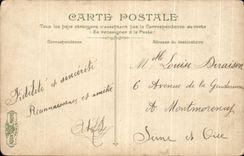 CARTE POSTALE
Tous les pays étrangers n'acceptent pas la Correspondance au recto
(Se renseigner à la Poste)
Correspondance
Adresse du destinataire
Fidélité et sincérité
Reconnaissance et amitié
Mlle Louise
6 Avenue de la Gendarmerie
A Montmorency
Seine et Oise